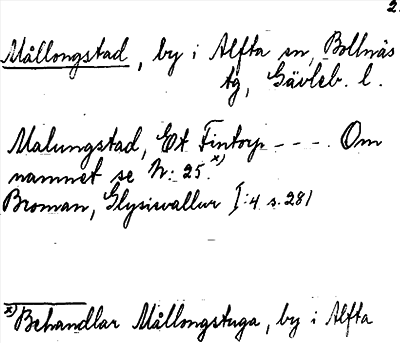 2.
Mållongstad, by i Alfta sn, Bollnäs
tg, Gävleb. l.
Malungstad, Et Fintorp - - - . Om
namnet se N: 25. x)
Broman, Glysisvallur I:4 s. 281
x) Behandlar Mållongstuga, by i Alfta